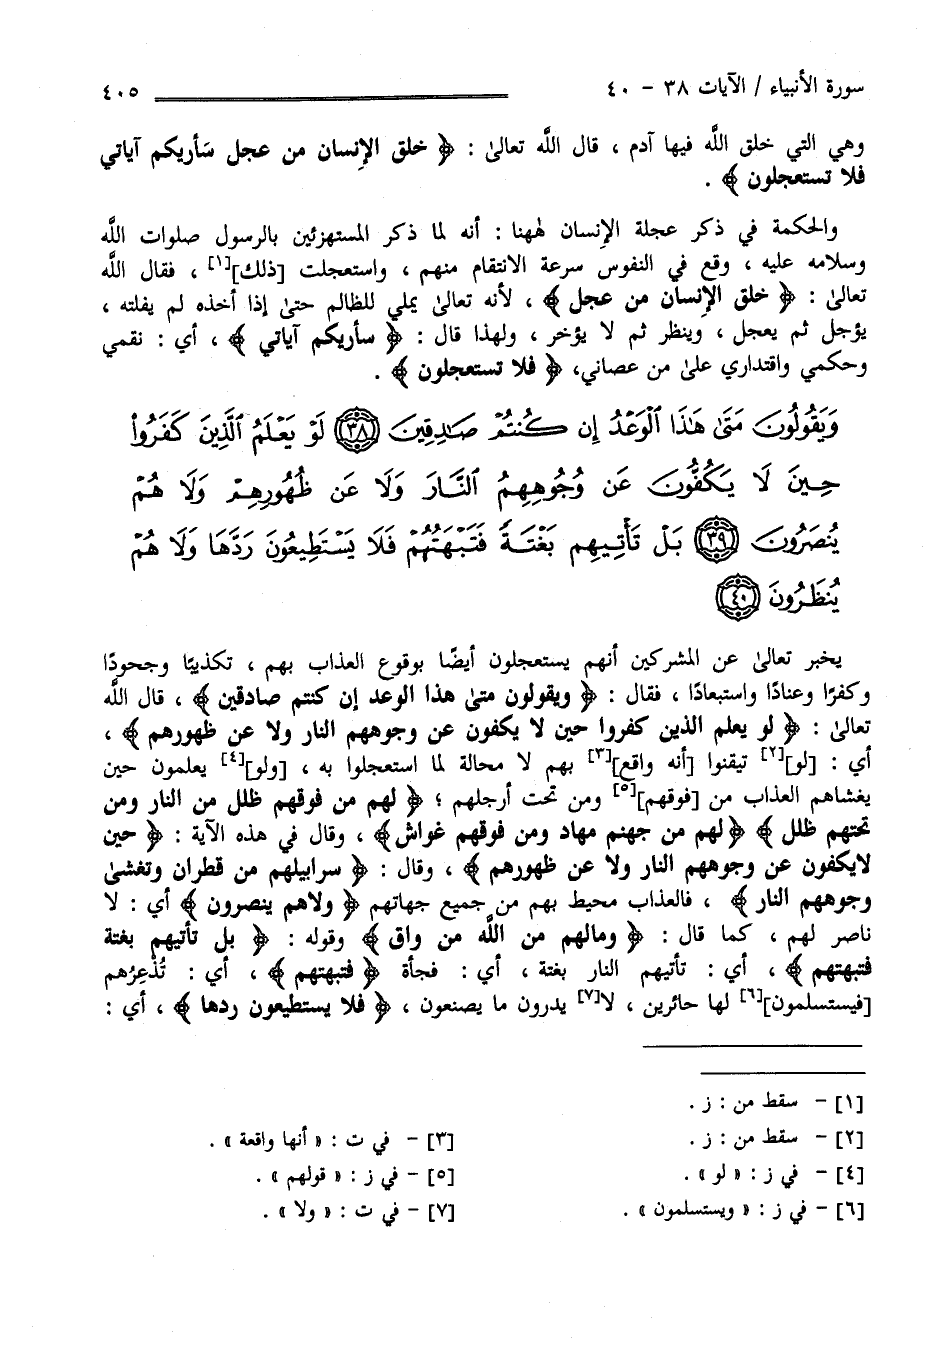 سورة الأنبياء / الآيات ٣٨ - ٤٠ ٤٠٥
وهي التي خلق اللَّه فيها آدم ، قال اللَّه تعالىٰ : ﴿ خلق الإنسان من عجل سَأريكم آياتي
فلا تستعجلون ﴾ .
والحكمة في ذكر عجلة الإنسان هٰهنا : أنه لما ذكر المستهزئين بالرسول صلوات اللَّه
وسلامه عليه ، وقع في النفوس سرعة الانتقام منهم ، واستعجلت [ذلك][١] ، فقال اللَّه
تعالىٰ : ﴿ خلق الإنسان من عجل ﴾ ، لأنه تعالىٰ يملي للظالم حتىٰ إذا أخذه لم يفلته ،
يؤجل ثم يعجل ، وينظر ثم لا يؤخر ، ولهذا قال : ﴿ سأريكم آياتي ﴾ ، أي : نقمي
وحكمي واقتداري علىٰ من عصاني، ﴿ فلا تستعجلون ﴾ .
وَيَقُولُونَ مَتَىٰ هَٰذَا ٱلْوَعْدُ إِن كُنتُمْ صَٰدِقِينَ ٣٨ لَوْ يَعْلَمُ ٱلَّذِينَ كَفَرُواْ
حِينَ لَا يَكُفُّونَ عَن وُجُوهِهِمُ ٱلنَّارَ وَلَا عَن ظُهُورِهِمْ وَلَا هُمْ
يُنصَرُونَ ٣٩ بَلْ تَأْتِيهِم بَغْتَةً فَتَبْهَتُهُمْ فَلَا يَسْتَطِيعُونَ رَدَّهَا وَلَا هُمْ
يُنظَرُونَ ٤٠
يخبر تعالىٰ عن المشركين أنهم يستعجلون أيضًا بوقوع العذاب بهم ، تكذيبًا وجحودًا
وكفرًا وعنادًا واستبعادًا ، فقال : ﴿ ويقولون متىٰ هذا الوعد إن كنتم صادقين ﴾ ، قال اللَّه
تعالىٰ : ﴿ لو يعلم الذين كفروا حين لا يكفون عن وجوههم النار ولا عن ظهورهم ﴾ ،
أي : [لو][٢] تيقنوا [أنه واقع][٣] بهم لا محالة لما استعجلوا به ، [ولو][٤] يعلمون حين
يغشاهم العذاب من [فوقهم][٥] ومن تحت أرجلهم ؛ ﴿ لهم من فوقهم ظلل من النار ومن
تحتهم ظلل ﴾ ﴿لهم من جهنم مهاد ومن فوقهم غواش﴾ ، وقال في هذه الآية : ﴿ حين
لايكفون عن وجوههم النار ولا عن ظهورهم ﴾ ، وقال : ﴿ سرابيلهم من قطران وتغشىٰ
وجوههم النار ﴾ ، فالعذاب محيط بهم من جميع جهاتهم ﴿ ولاهم ينصرون ﴾ أي : لا
ناصر لهم ، كما قال : ﴿ ومالهم من اللَّه من واق ﴾ وقوله : ﴿ بل تأتيهم بغتة
فتبهتهم ﴾ ، أي : تأتيهم النار بغتة ، أي : فجأة ﴿ فتبهتهم ﴾ ، أي : تُذْعِرُهم
[فيستسلمون][٦] لها حائرين ، لا[٧] يدرون ما يصنعون ، ﴿ فلا يستطيعون ردها ﴾ ، أي :
[١] - سقط من : ز .
[٢] - سقط من : ز . [٣] - في ت : « أنها واقعة » .
[٤] - في ز : « لو » . [٥] - في ز : « قولهم » .
[٦] - في ز : « ويستسلمون » . [٧] - في ت : « ولا » .